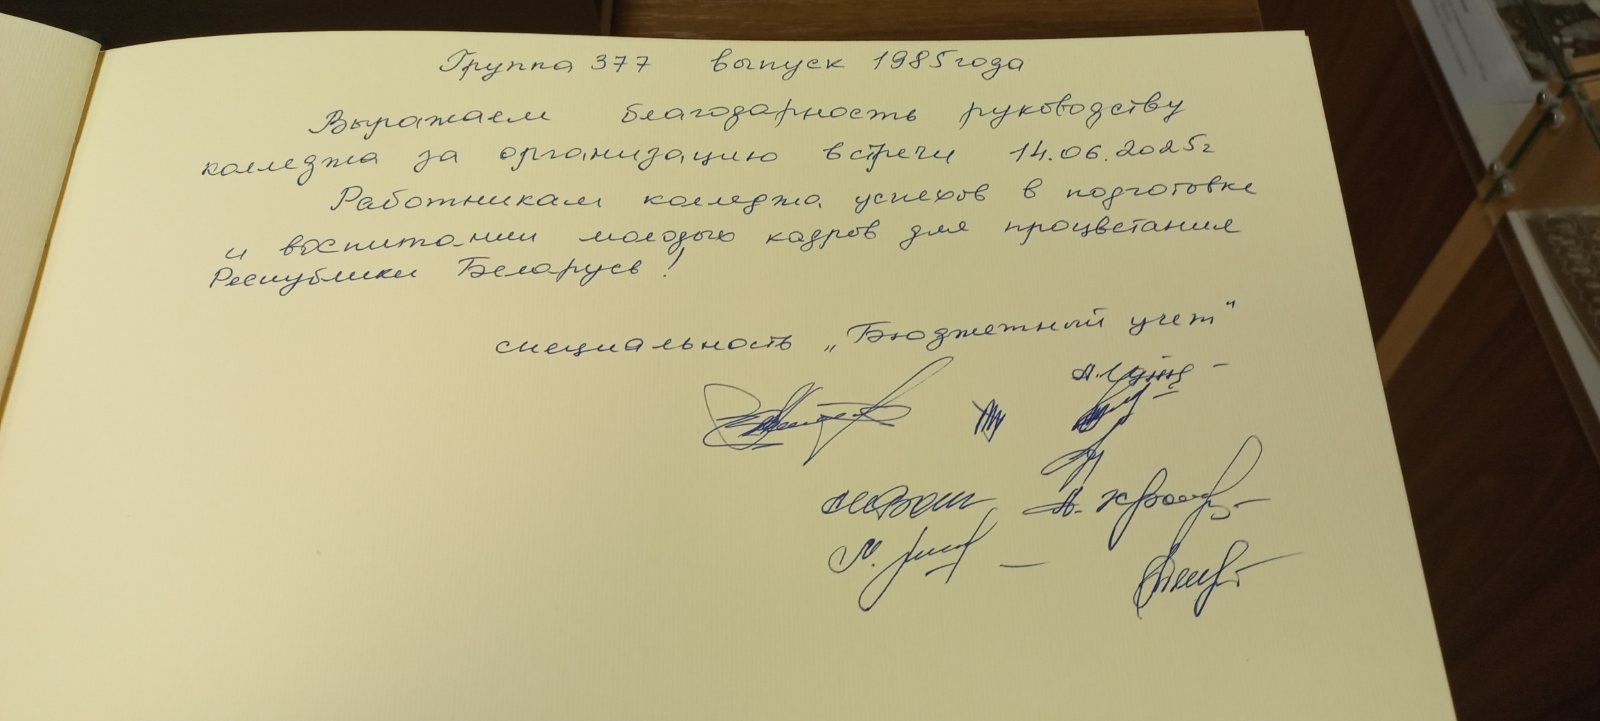 Группа 377 выпуск 1985 года
Выражаем благодарность руководству
колледжа за организацию встречи 14.06.2025г
Работникам колледжа успехов в подготовке
и воспитании молодых кадров для процветания
Республики Беларусь!
специальность „Бюджетный учет"